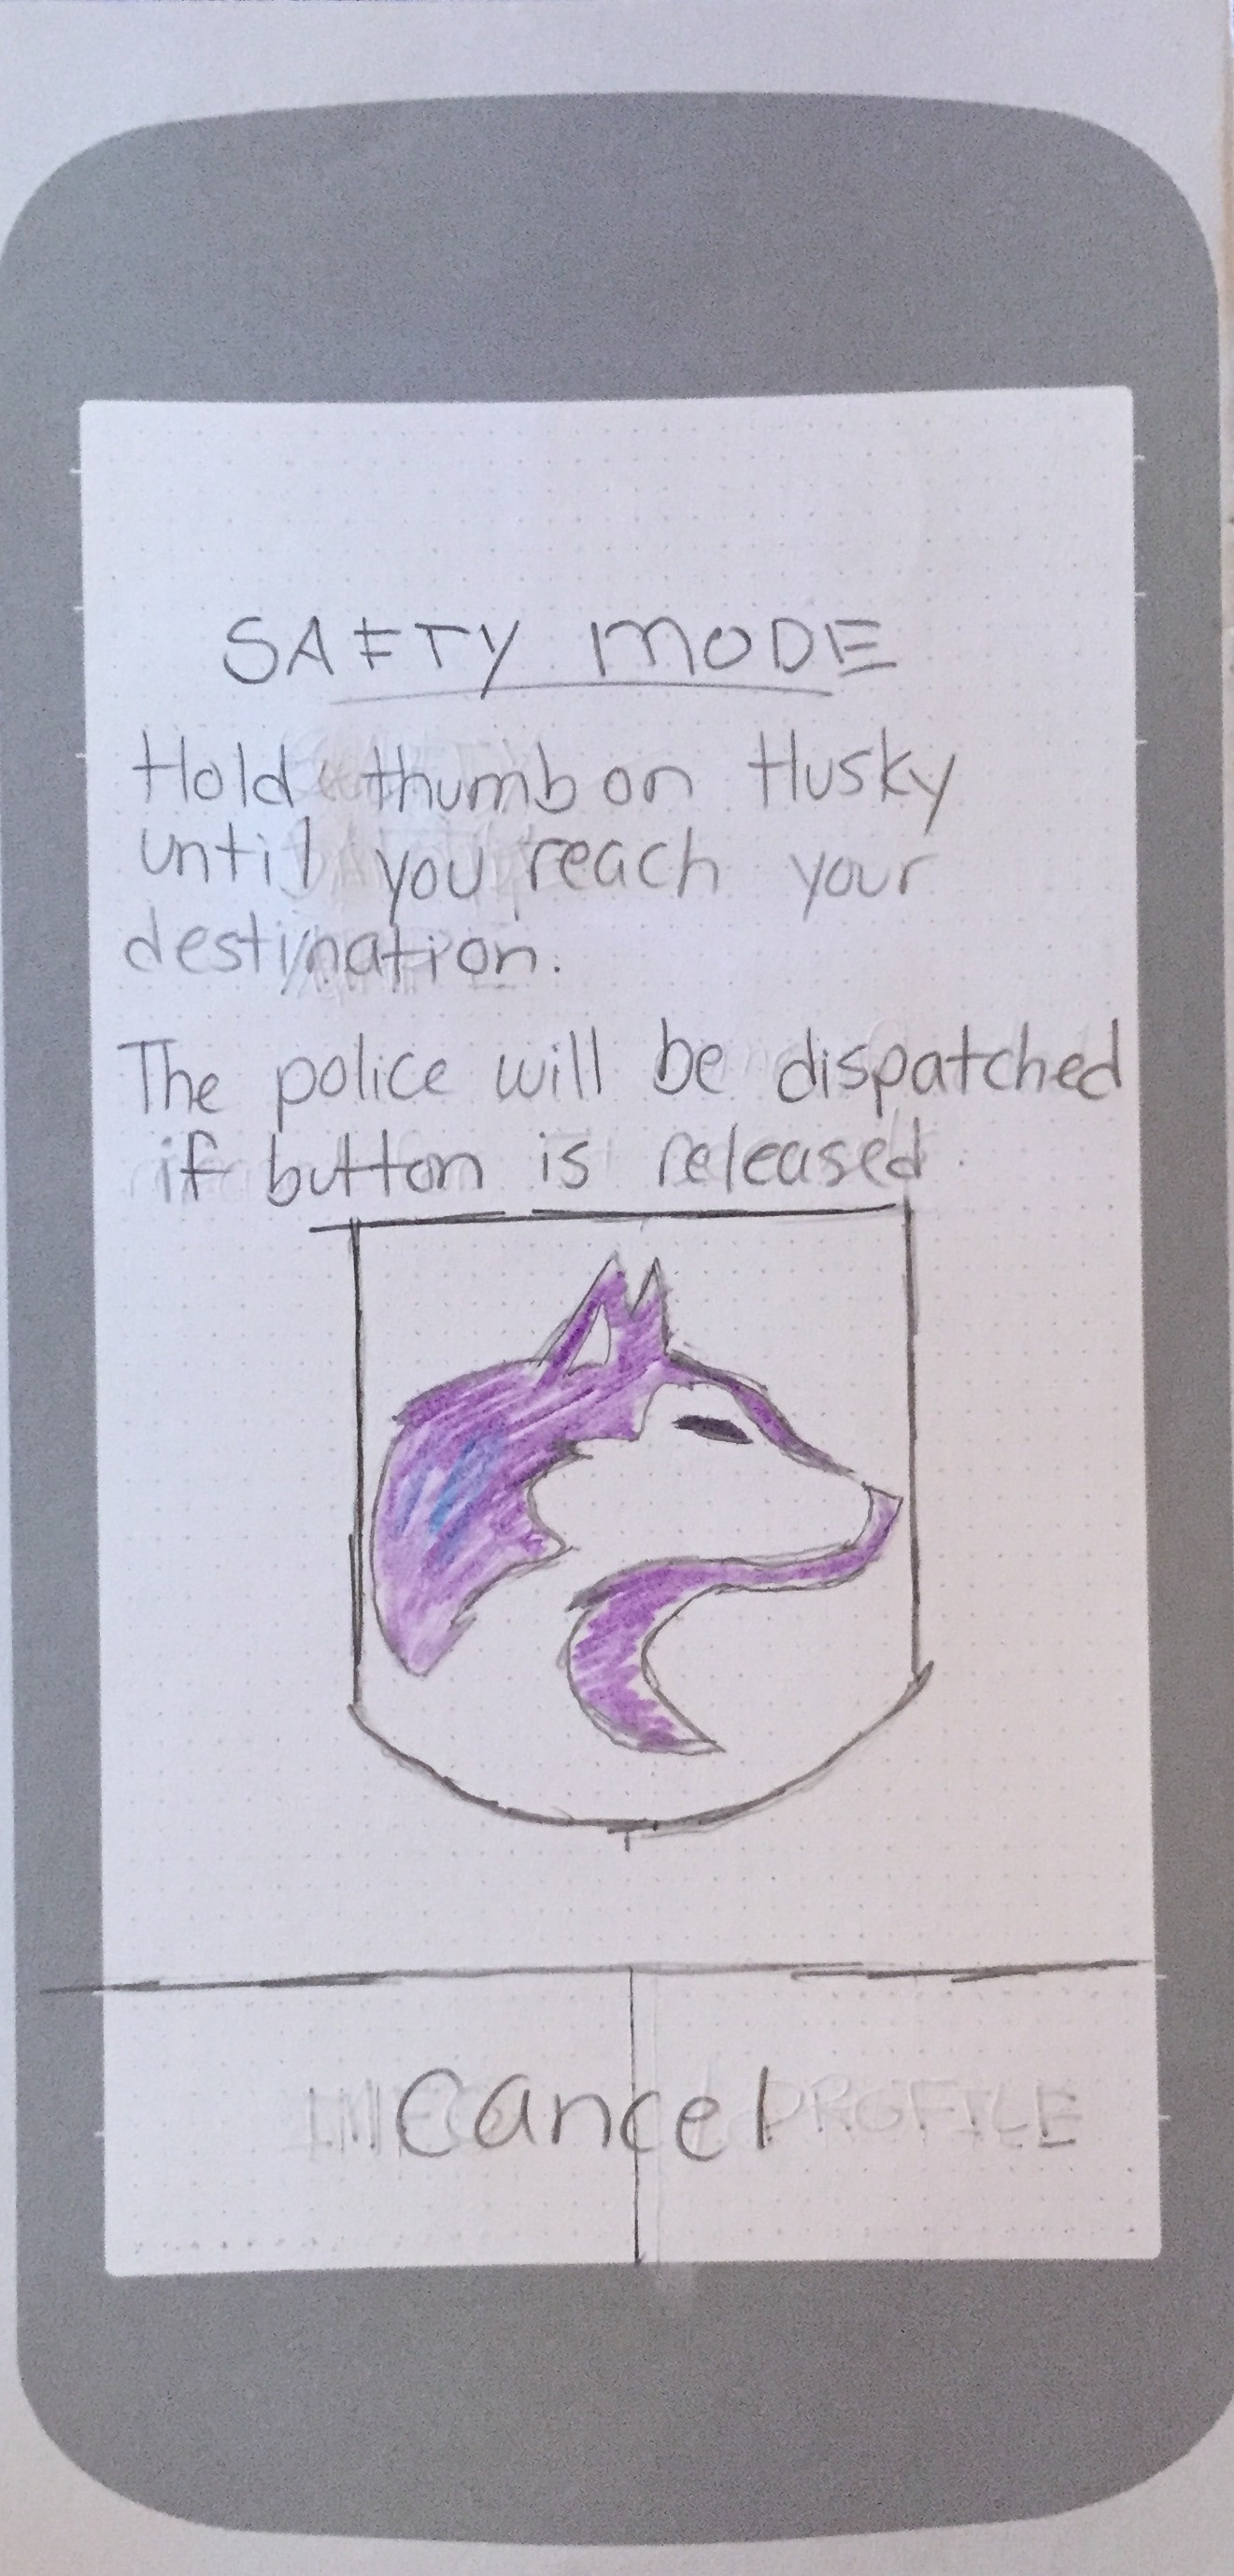 SAFTY MODE
Hold thumb on Husky
until you reach your
destination.
The police will be dispatched
if button is released.
Cancel
PROFILE